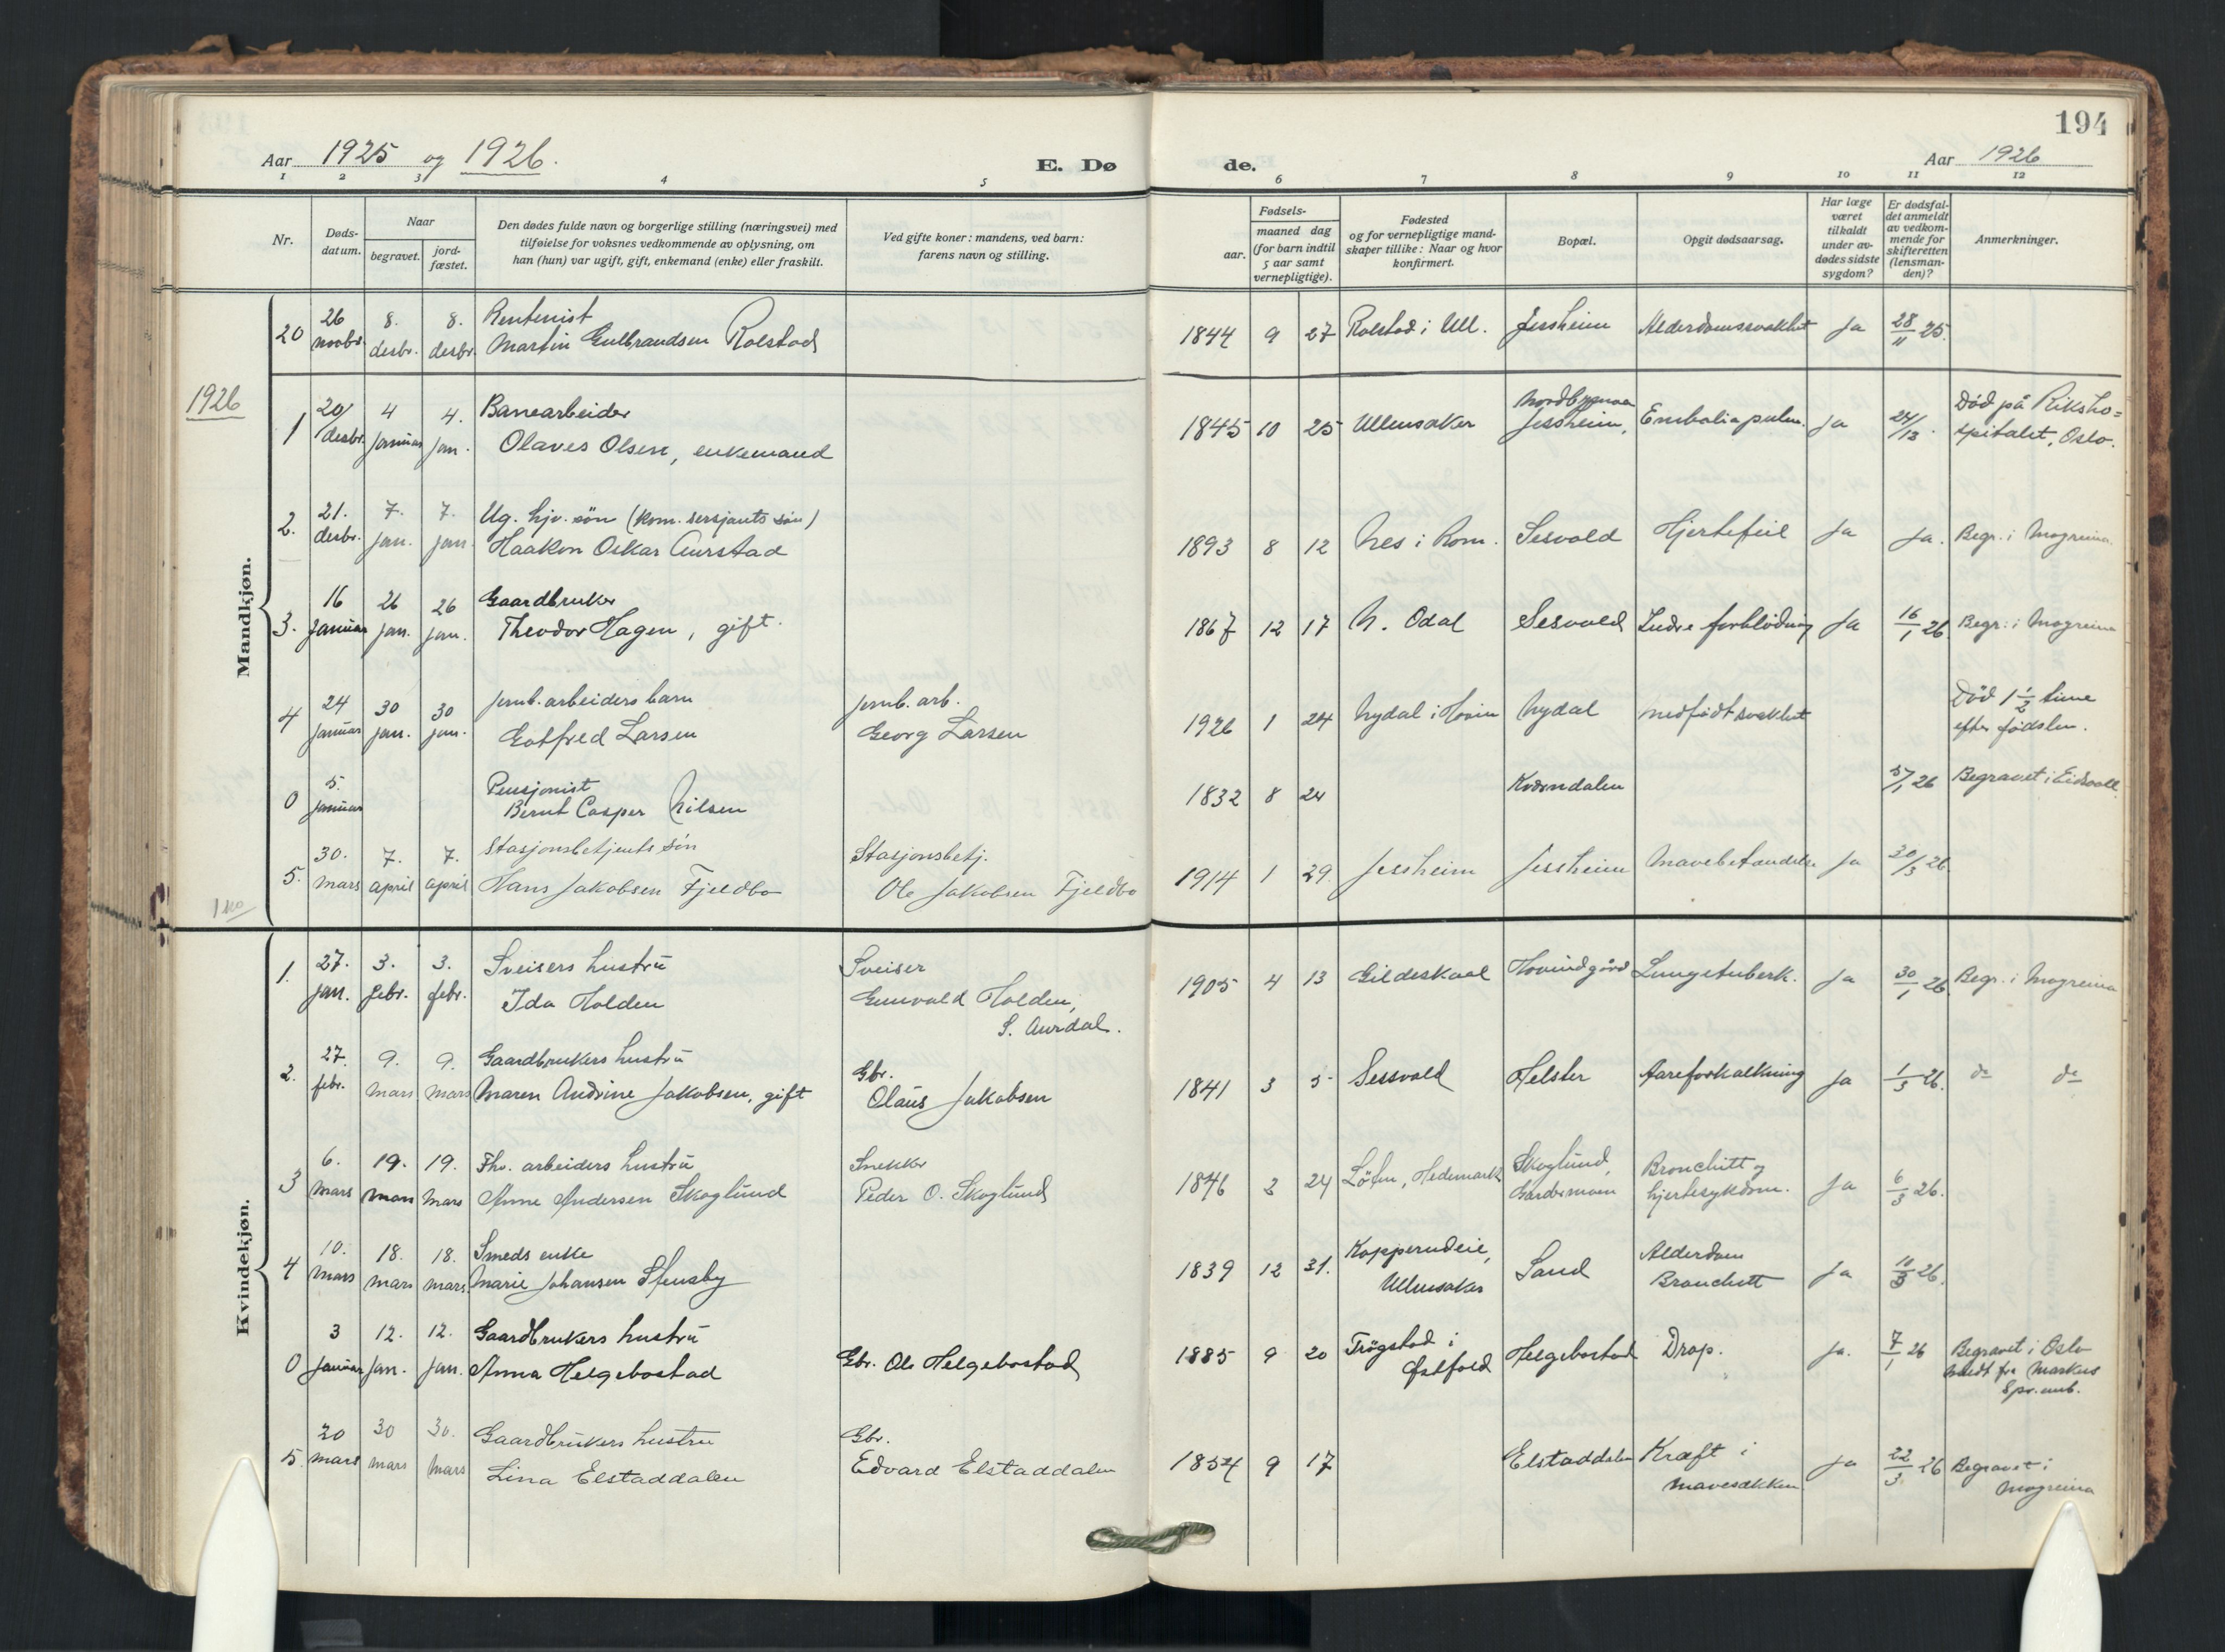 194
Aar 1925 og 1926.
E. Dø de.
Aar 1926
1 2 3 4 5 6 7 8 9 10 11 12
Nr.
Døds-
datum.
Naar
begravet.
jord-
fæstet.
Den dødes fulde navn og borgerlige stilling (næringsvei) med
tilføielse for voksnes vedkommende av oplysning, om
han (hun) var ugift, gift, enkemand (enke) eller fraskilt.
Ved gifte koner: mandens, ved barn:
farens navn og stilling.
Fødsels-
aar.
maaned dag
(for barn indtil
5 aar samt
vernepligtige).
Fødested
og for vernepligtige mand-
skaper tillike: Naar og hvor
konfirmert.
Bopæl.
Opgit dødsaarsag.
Har læge
været
tilkaldt
under av-
dødes sidste
sygdom?
Er dødsfal-
det anmeldt
av vedkom-
mende for
skifteretten
(lensman-
den)?
Anmerkninger.
Mandkjøn.
20 26 novbr. 8. desbr. 8. desbr. Rentenist
Martin Gulbrandsen Rolstad
1844 9 27 Rolstad i Ull. Jessheim Alderdomssvakhet Ja 28/11 25.
1926
1 20/desbr. 4 januar 4. jan. Banearbeider
Olaves Olsen, enkemand
1845 10 25 Ullensaker Nordbymoen
Jessheim, Embolia pulm. Ja 24/12. Död på Riksho=
spitalet, Oslo.
2. 21. desbr. 7. jan. 7. jan. Ug. hjv. søn (kom. sersjants søn)
Haakon Oskar Aurstad
1893 8 12 Nes i Rom. Sesvold Hjertefeil Ja Ja. Begr. i Mogreina.
3. 16 januar 26 jan. 26 jan. Gaardbruker
Theodor Hagen, gift.
1867 12 17 N. Odal Sesvold Indre forblödning Ja 16/1 26. Begr. i Mogreina
4 24 januar 30 jan. 30 jan. Jernb. arbeiders barn
Gotfred Larsen
Jernb. arb.
Georg Larsen
1926 1 24 Nydal i Hovin Nydal medfödt svakhet Död 1 1/2 time
efter födslen.
0 5. januar Pensjonist
Bernt Casper Nilsen
1832 8 24 Kverndalen 5/1 26 Begravet i Eidsvoll.
5. 30. mars 7. april 7. april Stasjonsbetjents søn
Hans Jakobsen Fjeldbo
Stasjonsbetj.
Ole Jakobsen Fjeldbo
1914 1 29. Jessheim Jessheim Mavebetændelse Ja 30/3 26.
Kvindekjøn.
1. 27. jan. 3. febr. 3. febr. Sveisers hustru
Ida Holden
Sveiser
Gunvald Holden,
S. Aurdal.
1905 4 13 Gildeskaal Hovindgård Lungetuberk. Ja 30/1 26. Begr. i Mogreina
2. 27. febr. 9. mars 9. mars Gaardbrukers hustru
Maren Andrine Jakobsen, gift
Gbr.
Olaus Jakobsen
1841 3 5 Sessvold Helsler Aareforkalkning Ja 1/3 26. do do
3 6. mars 19. mars 19. mars Fhv. arbeiders hustru
Anne Andersen Skoglund
Snekker
Peder O. Skoglund
1846 2 24 Löten, Hedemark Skoglund,
Gardermoen Bronchitt og
hjertesykdom. Ja 6/3 26.
4 10. mars 18. mars 18. mars. Smeds enke
Marie Johansen Stensby
1839 12 31. Kopperudeie,
Ullensaker Sand Alderdom
Bronchitt Ja 10/3 26.
0 3 januar 12. jan. 12. jan. Gaardbrukers hustru
Anna Helgebostad
Gbr. Ole Helgebostad
1885 9 20 Trögstad i
Østfold Helgebostad Drap. Ja. 7/1 26 Begravet i Oslo
meldt fra Markus
Spr. emb.
5. 20 mars 30 mars 30. mars Gaardbrukers hustru
Lina Elstaddalen
Gbr.
Edvard Elstaddalen
1854 9 17 Elstaddalen Kræft i
mavesækken Ja 22/3. 26 Begravet i
Mogreina